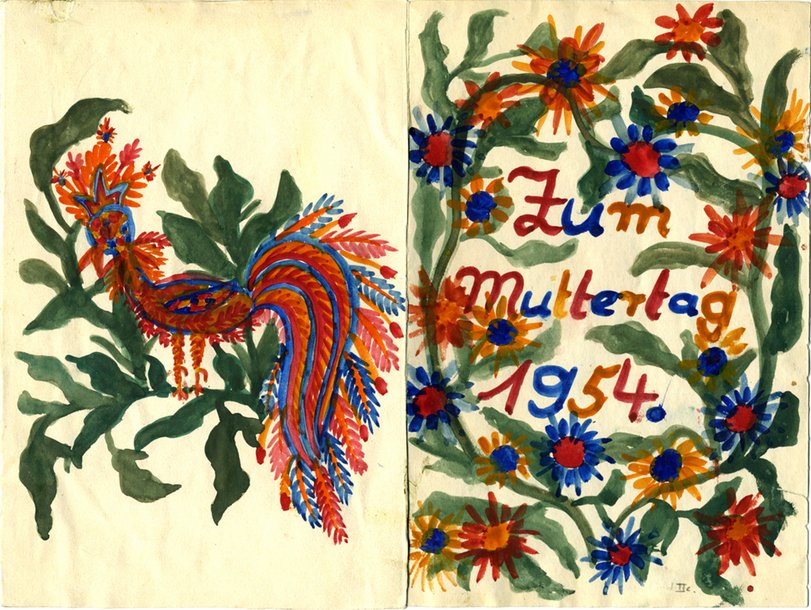 Zum
Muttertag
1954.
IIc.